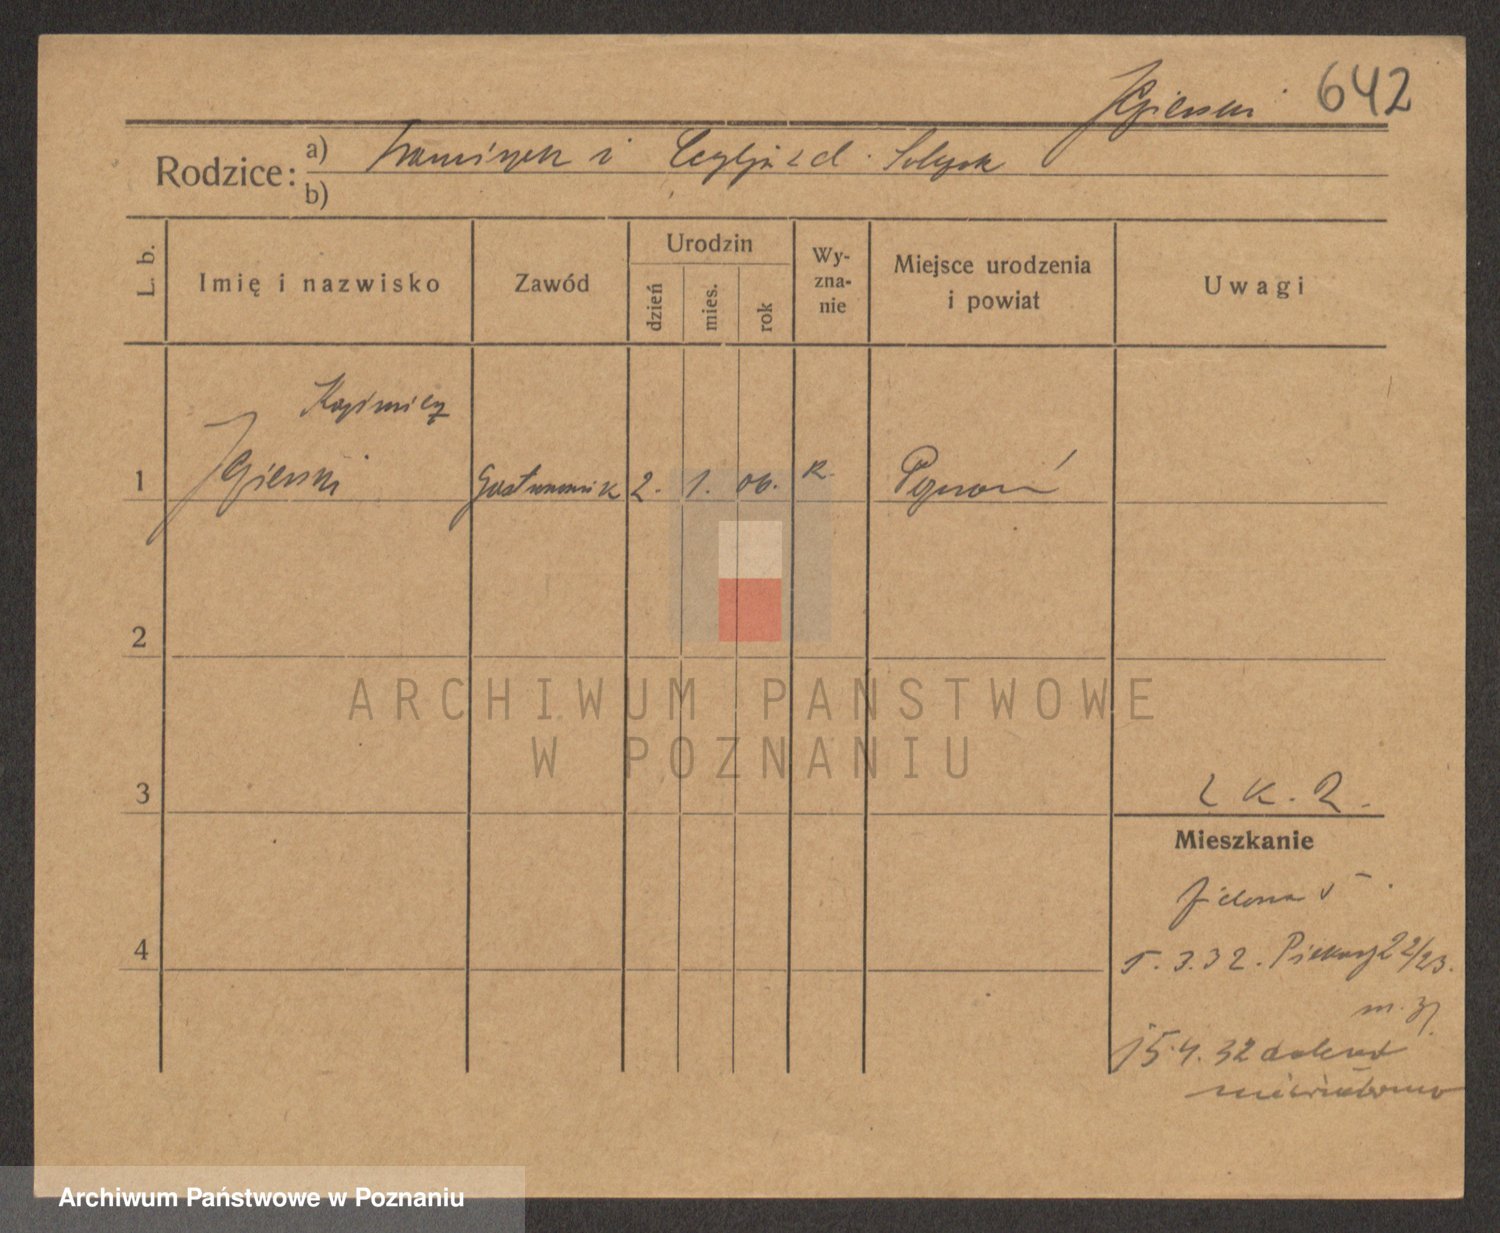 642
Rodzice: a) Franciszek i Cecylja z d.
b)
L. b. Imię i nazwisko Zawód Urodzin dzień mies. rok Wy-zna-nie Miejsce urodzenia i powiat Uwagi
Kazimierz
1 Gastronomik 2. 1. 06. R. Poznań
2
ARCHIWUM PAŃSTWOWE
W POZNANIU
3
Z K. R.
Mieszkanie
Zielona 5
4
5.3.32. Piekary 22/23.
15.4.32 dokąd
niewiadomo
Archiwum Państwowe w Poznaniu